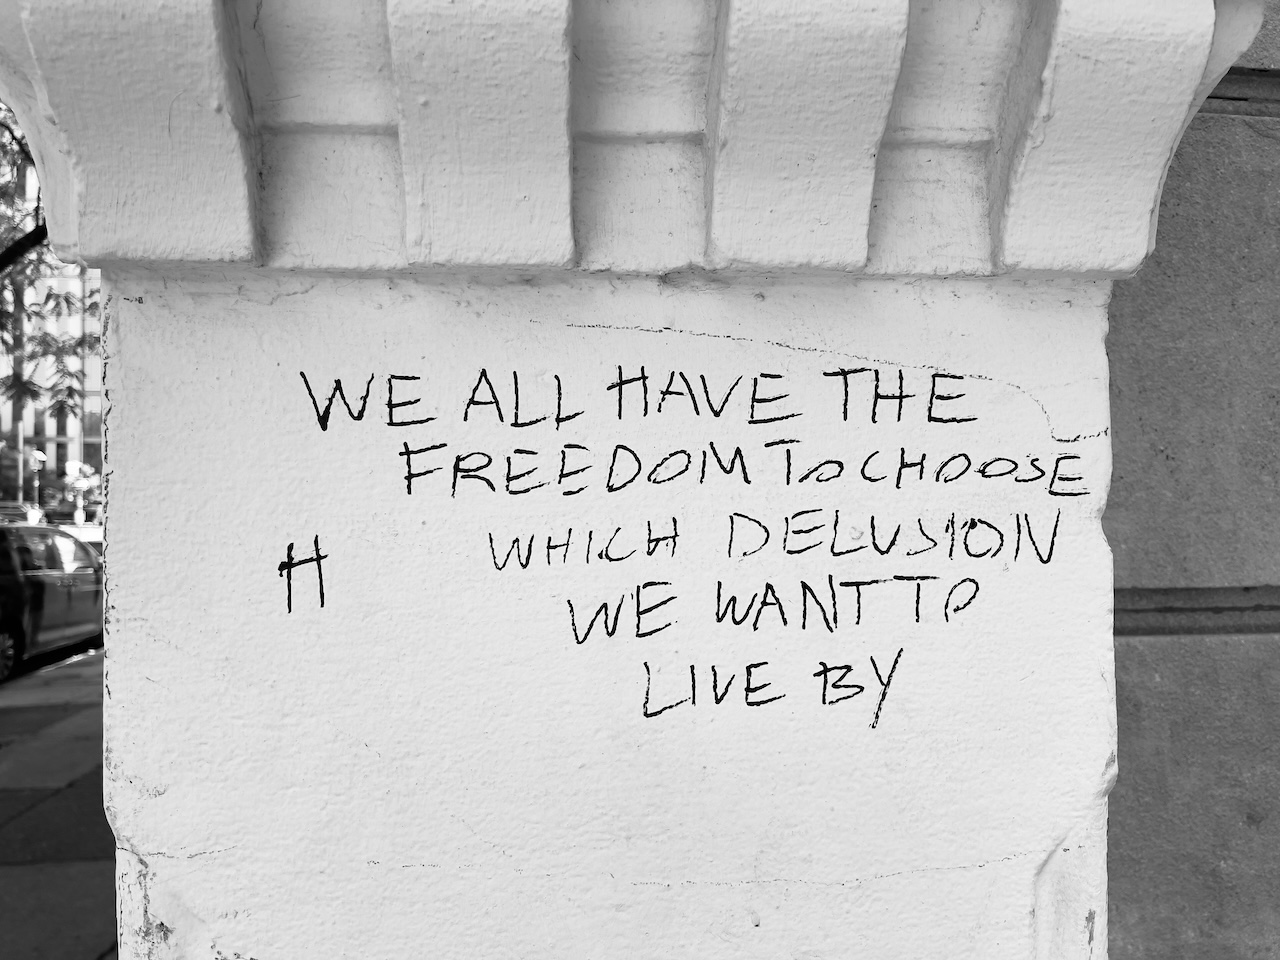 WE ALL HAVE THE
FREEDOM TO CHOOSE
WHICH DELUSION
WE WANT TO
LIVE BY
H